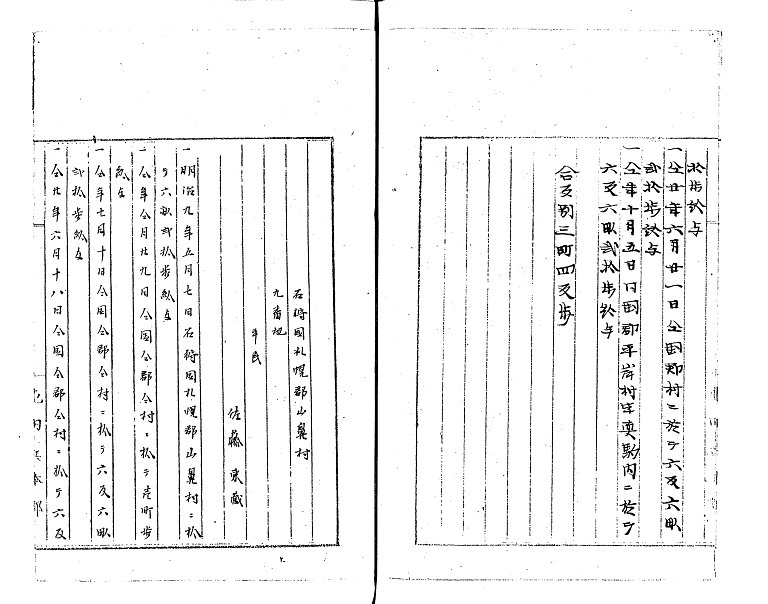 拾歩給与
一仝廿年六月廿一日仝国郡村ニ於テ六反六畝
弐拾歩給与
一仝年十月五日同国郡平岸村字真駒内ニ於テ
六反六畝弐拾歩給与
合反別三町四反歩
石狩国札幌郡山鼻村
九番地
平民
佐藤東蔵
一明治九年五月七日石狩国札幌郡山鼻村ニ於
テ六畝弐拾歩給与
一仝年仝月廿九日仝国仝郡仝村ニ於テ壱町歩
給与
一仝年七月十日仝国仝郡仝村ニ於テ六反六畝
弐拾歩給与
一仝廿年六月十八日仝国仝郡仝村ニ於テ六反
屯田兵本部